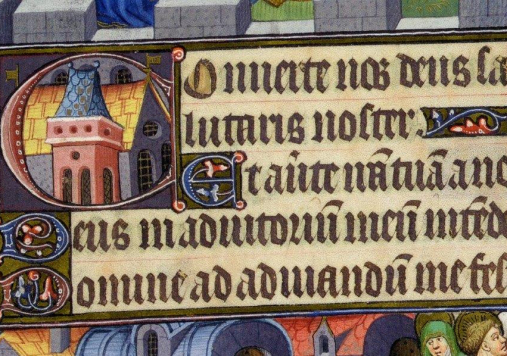 Conuerte nos deus sa
lutaris noster.
Et au̅te nr̅am tua̅ a no
Deus in adiutoriu̅ meu̅ inte̅de
Domine ad adiuuandu̅ me fes